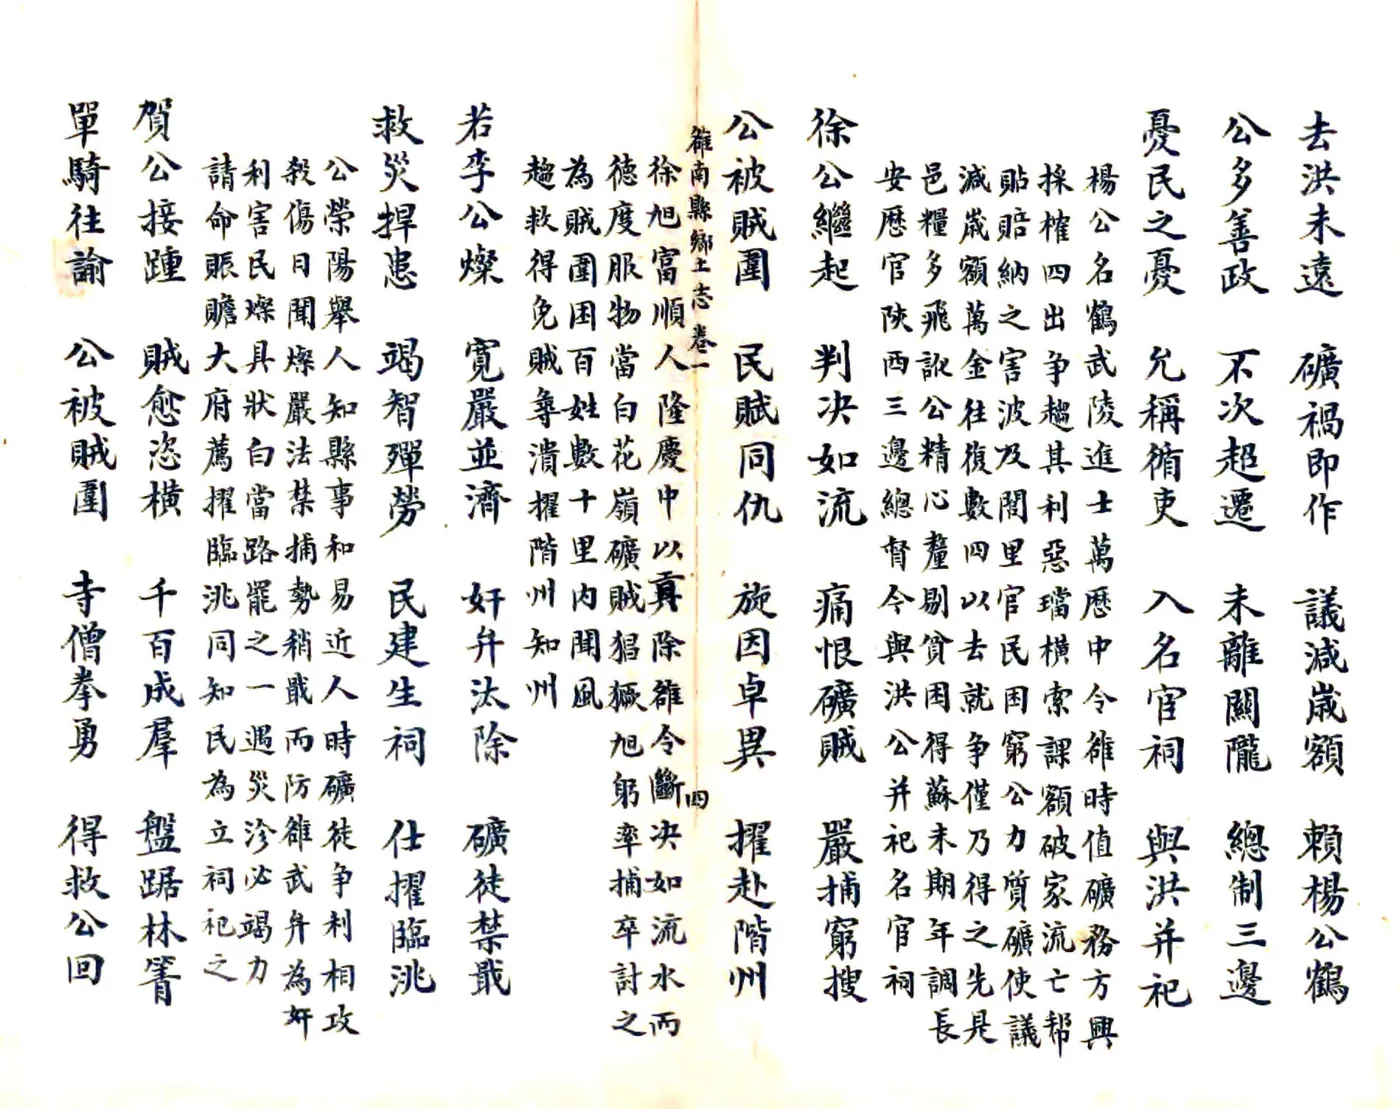 去洪未遠 礦禍即作 議減歲額 賴楊公鶴
公多善政 不次超遷 未離關隴 總制三邊
憂民之憂 允稱循吏 入名宦祠 與洪并祀
楊公名鶴武陵進士萬歷中令雒時值礦務方興
採榷四出争趨其利惡璫橫索課額破家流亡帮
貼賠納之害波及閭里官民困窮公力質礦使議
減歲額萬金往復數四以去就争僅乃得之先是
邑糧多飛詭公精心釐剔貧困得蘇未期年調長
安歷官陝西三邊總督今與洪公并祀名宦祠
徐公繼起 判决如流 痛恨礦賊 嚴捕窮搜
公被賊圍 民賦同仇 旋因卓異 擢赴階州
雒南縣鄉土志 卷一 四
徐旭富順人隆慶中以貢除雒令斷决如流水而
德度服物當白花嶺礦賊猖獗旭躬率捕卒討之
為賊圍困百姓數十里内聞風
趨救得免賊尋潰擢階州知州
若李公燦 寬嚴並濟 奸弁汰除 礦徒禁戢
救災捍患 竭智殫勞 民建生祠 仕擢臨洮
公榮陽舉人知縣事和易近人時礦徒争利相攻
殺傷日聞燦嚴法禁捕勢稍戢而防雒武弁為奸
利害民燦具狀白當路罷之一遇災沴必竭力
請命賑贍大府薦擢臨洮同知民為立祠祀之
賀公接踵 賊愈恣橫 千百成羣 盤踞林箐
單騎往諭 公被賊圍 寺僧拳勇 得救公回